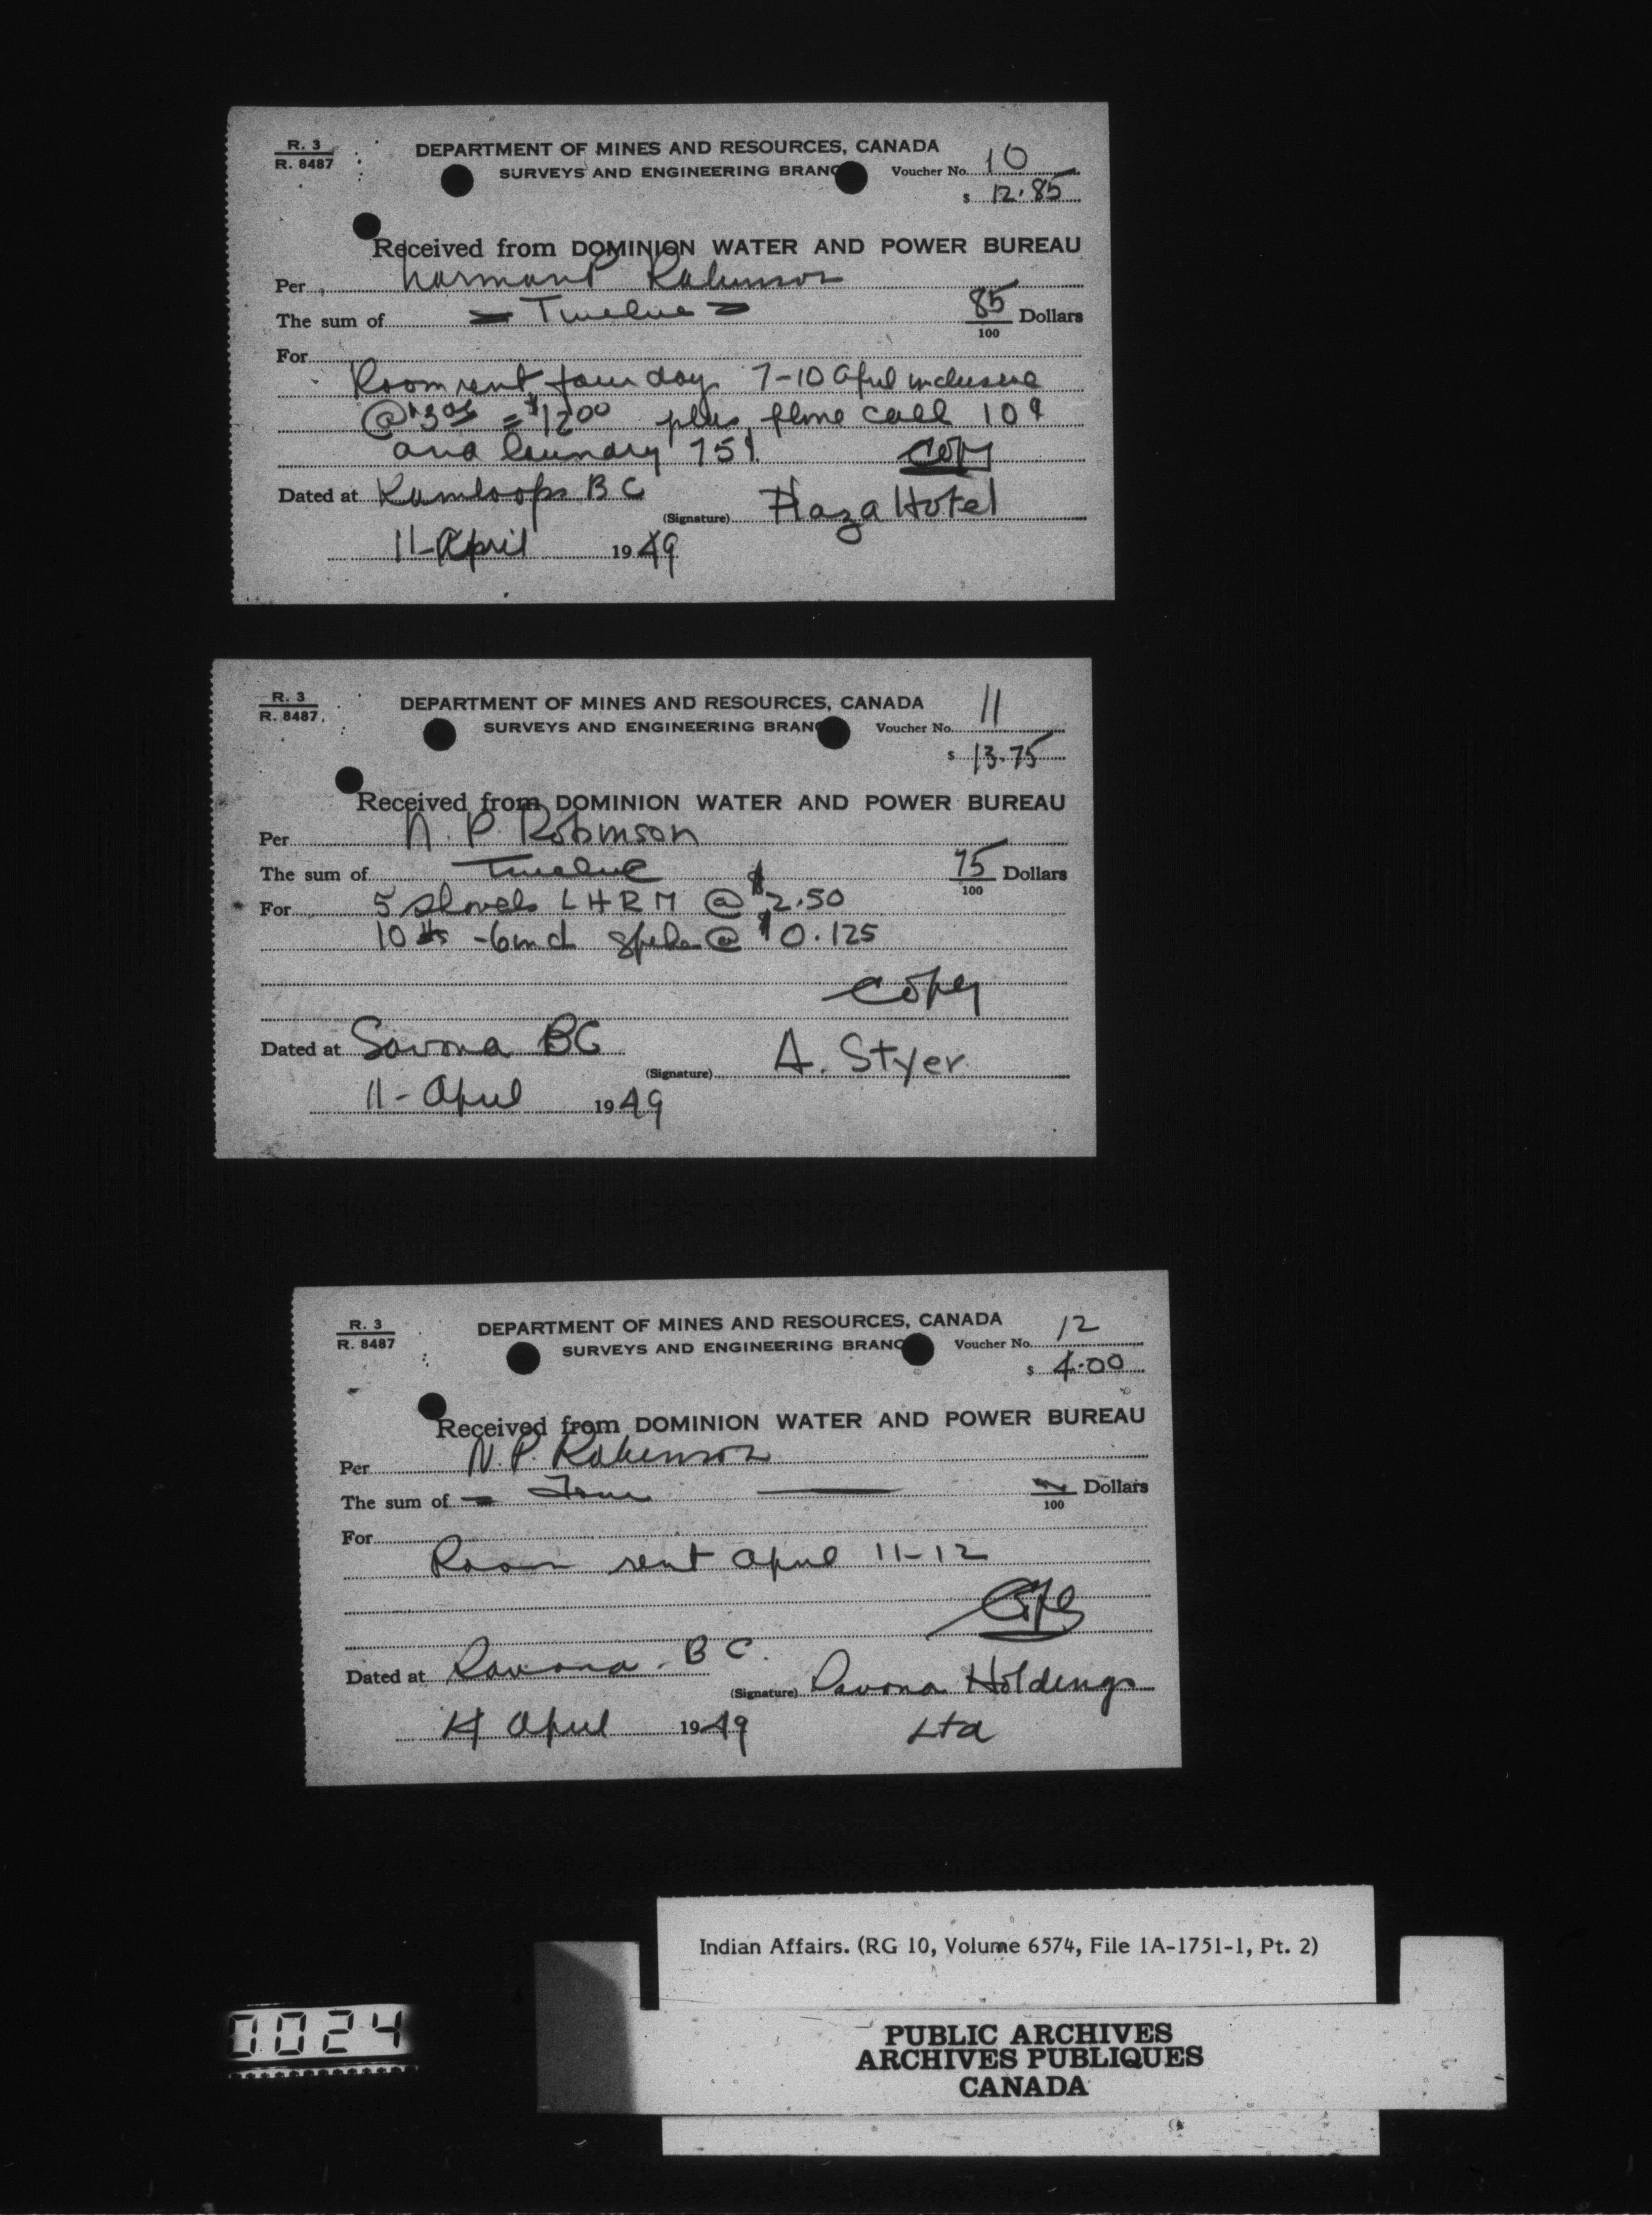 R. 3
R. 8487
DEPARTMENT OF MINES AND RESOURCES, CANADA
SURVEYS AND ENGINEERING BRANC
Voucher No. 10
$ 12.85
Received from DOMINION WATER AND POWER BUREAU
Per Norman P Robinson
The sum of = Twelve = 85/100 Dollars
For
Room rent four days 7-10 April inclusive
@ $3.00 = $12.00 plus phone call 10¢
and laundry 75¢ Copy
Dated at Kamloops B C
(Signature) Plaza Hotel
11-April 1949
R. 3
R. 8487
DEPARTMENT OF MINES AND RESOURCES, CANADA
SURVEYS AND ENGINEERING BRANC
Voucher No. 11
$ 13.75
Received from DOMINION WATER AND POWER BUREAU
Per N. P. Robinson
The sum of Twelve 75/100 Dollars
For 5 shovels LHRM @ $2.50
10 - 6 inch spikes @ $0.125
Copy
Dated at Savona BC
(Signature) A. Styer
11 - April 1949
R. 3
R. 8487
DEPARTMENT OF MINES AND RESOURCES, CANADA
SURVEYS AND ENGINEERING BRANC
Voucher No. 12
$ 4.00
Received from DOMINION WATER AND POWER BUREAU
Per N. P. Robinson
The sum of = Four — /100 Dollars
For
Room rent April 11-12
Copy
Dated at Savona. B C.
(Signature) Savona Holdings
April 1949 Ltd
Indian Affairs. (RG 10, Volume 6574, File 1A-1751-1, Pt. 2)
PUBLIC ARCHIVES
ARCHIVES PUBLIQUES
CANADA
0024